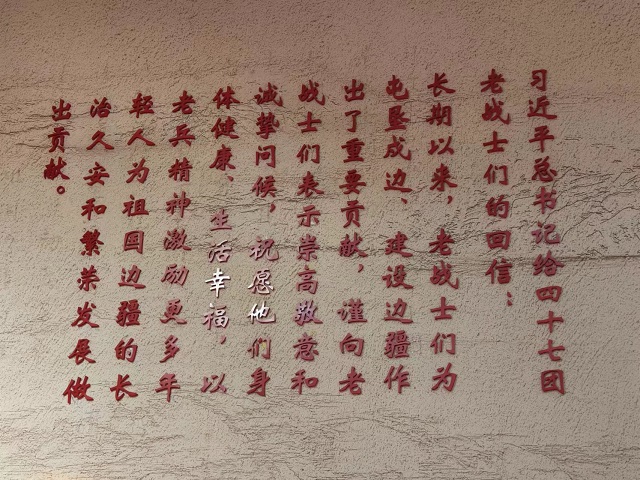 习近平总书记给四十七团
老战士们的回信：
长期以来，老战士们为
屯垦戍边、建设边疆作
出了重要贡献，谨向老
战士们表示崇高敬意和
诚挚问候，祝愿他们身
体健康、生活幸福，以
老兵精神激励更多年
轻人为祖国边疆的长
治久安和繁荣发展做
出贡献。